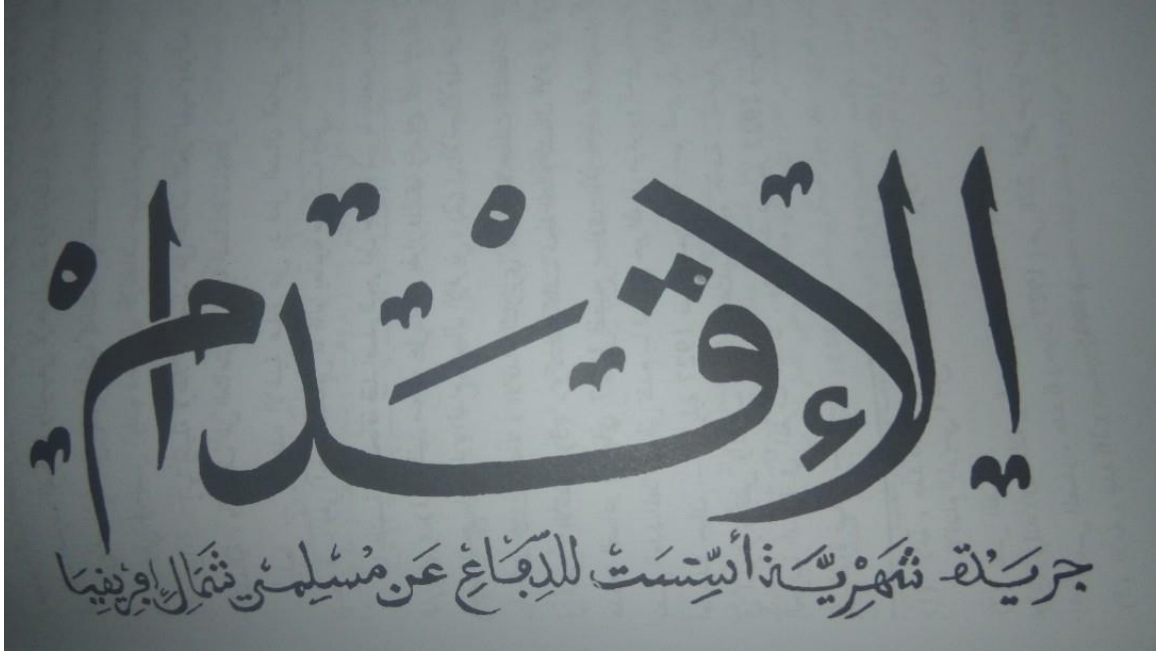 الإقْدَامْ
جريدة شَهْرِيَّة أسِّسَت للدِّفَاعِ عَن مُسْلِمي شَمَالِ إفرِيقِيَا